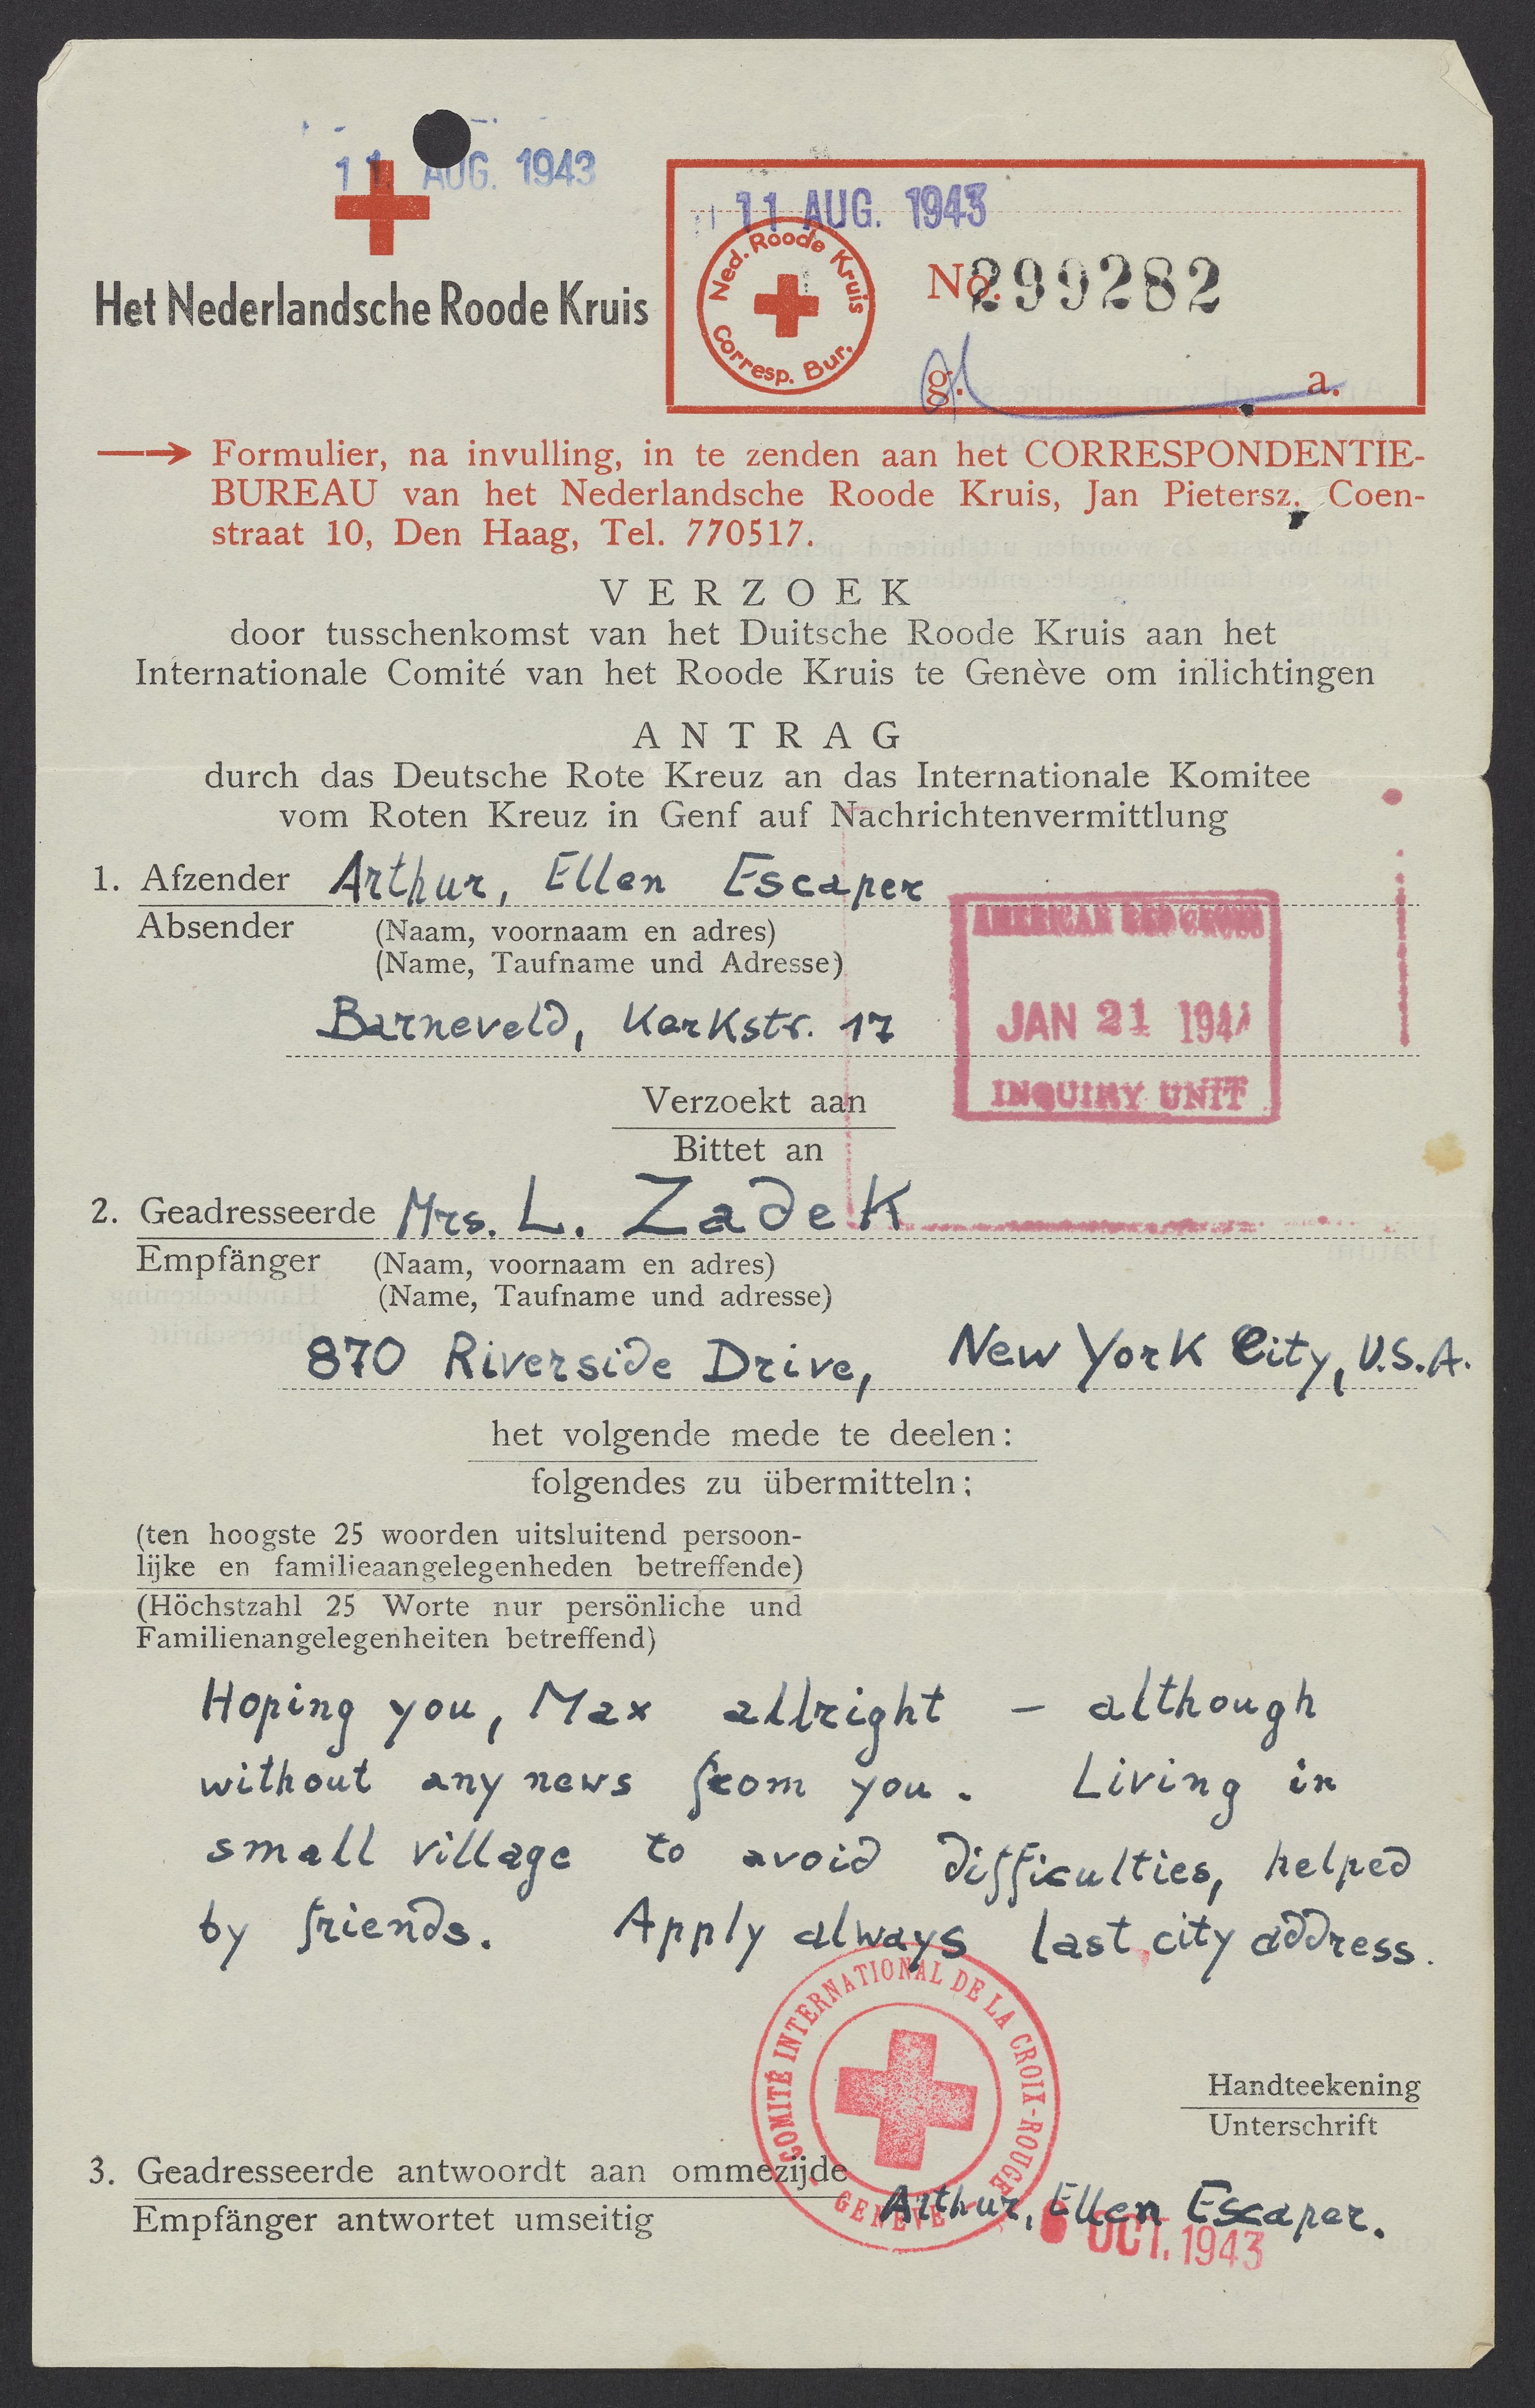 11 AUG. 1943
11 AUG. 1943
Ned. Roode Kruis
Corresp. Bur.
No. 299282
g. a.
Het Nederlandsche Roode Kruis
Formulier, na invulling, in te zenden aan het CORRESPONDENTIE-
BUREAU van het Nederlandsche Roode Kruis, Jan Pietersz. Coen-
straat 10, Den Haag, Tel. 770517.
VERZOEK
door tusschenkomst van het Duitsche Roode Kruis aan het
Internationale Comité van het Roode Kruis te Genève om inlichtingen
ANTRAG
durch das Deutsche Rote Kreuz an das Internationale Komitee
vom Roten Kreuz in Genf auf Nachrichtenvermittlung
1. Afzender Arthur, Ellen Escaper
Absender (Naam, voornaam en adres)
(Name, Taufname und Adresse)
AMERICAN RED CROSS
JAN 21 1944
INQUIRY UNIT
Barneveld, Kerkstr. 17
Verzoekt aan
Bittet an
2. Geadresseerde Mrs. L. Zadek
Empfänger (Naam, voornaam en adres)
(Name, Taufname und adresse)
870 Riverside Drive, New York City, U.S.A.
het volgende mede te deelen:
folgendes zu übermitteln:
(ten hoogste 25 woorden uitsluitend persoon-
lijke en familieaangelegenheden betreffende)
(Höchstzahl 25 Worte nur persönliche und
Familienangelegenheiten betreffend)
Hoping you, Max allright - although
without any news from you. Living in
small village to avoid difficulties, helped
by friends. Apply always last city address.
COMITÉ INTERNATIONAL DE LA CROIX-ROUGE
GENÈVE
Handteekening
Unterschrift
3. Geadresseerde antwoordt aan ommezijde
Empfänger antwortet umseitig
Arthur, Ellen Escaper.
OCT. 1943